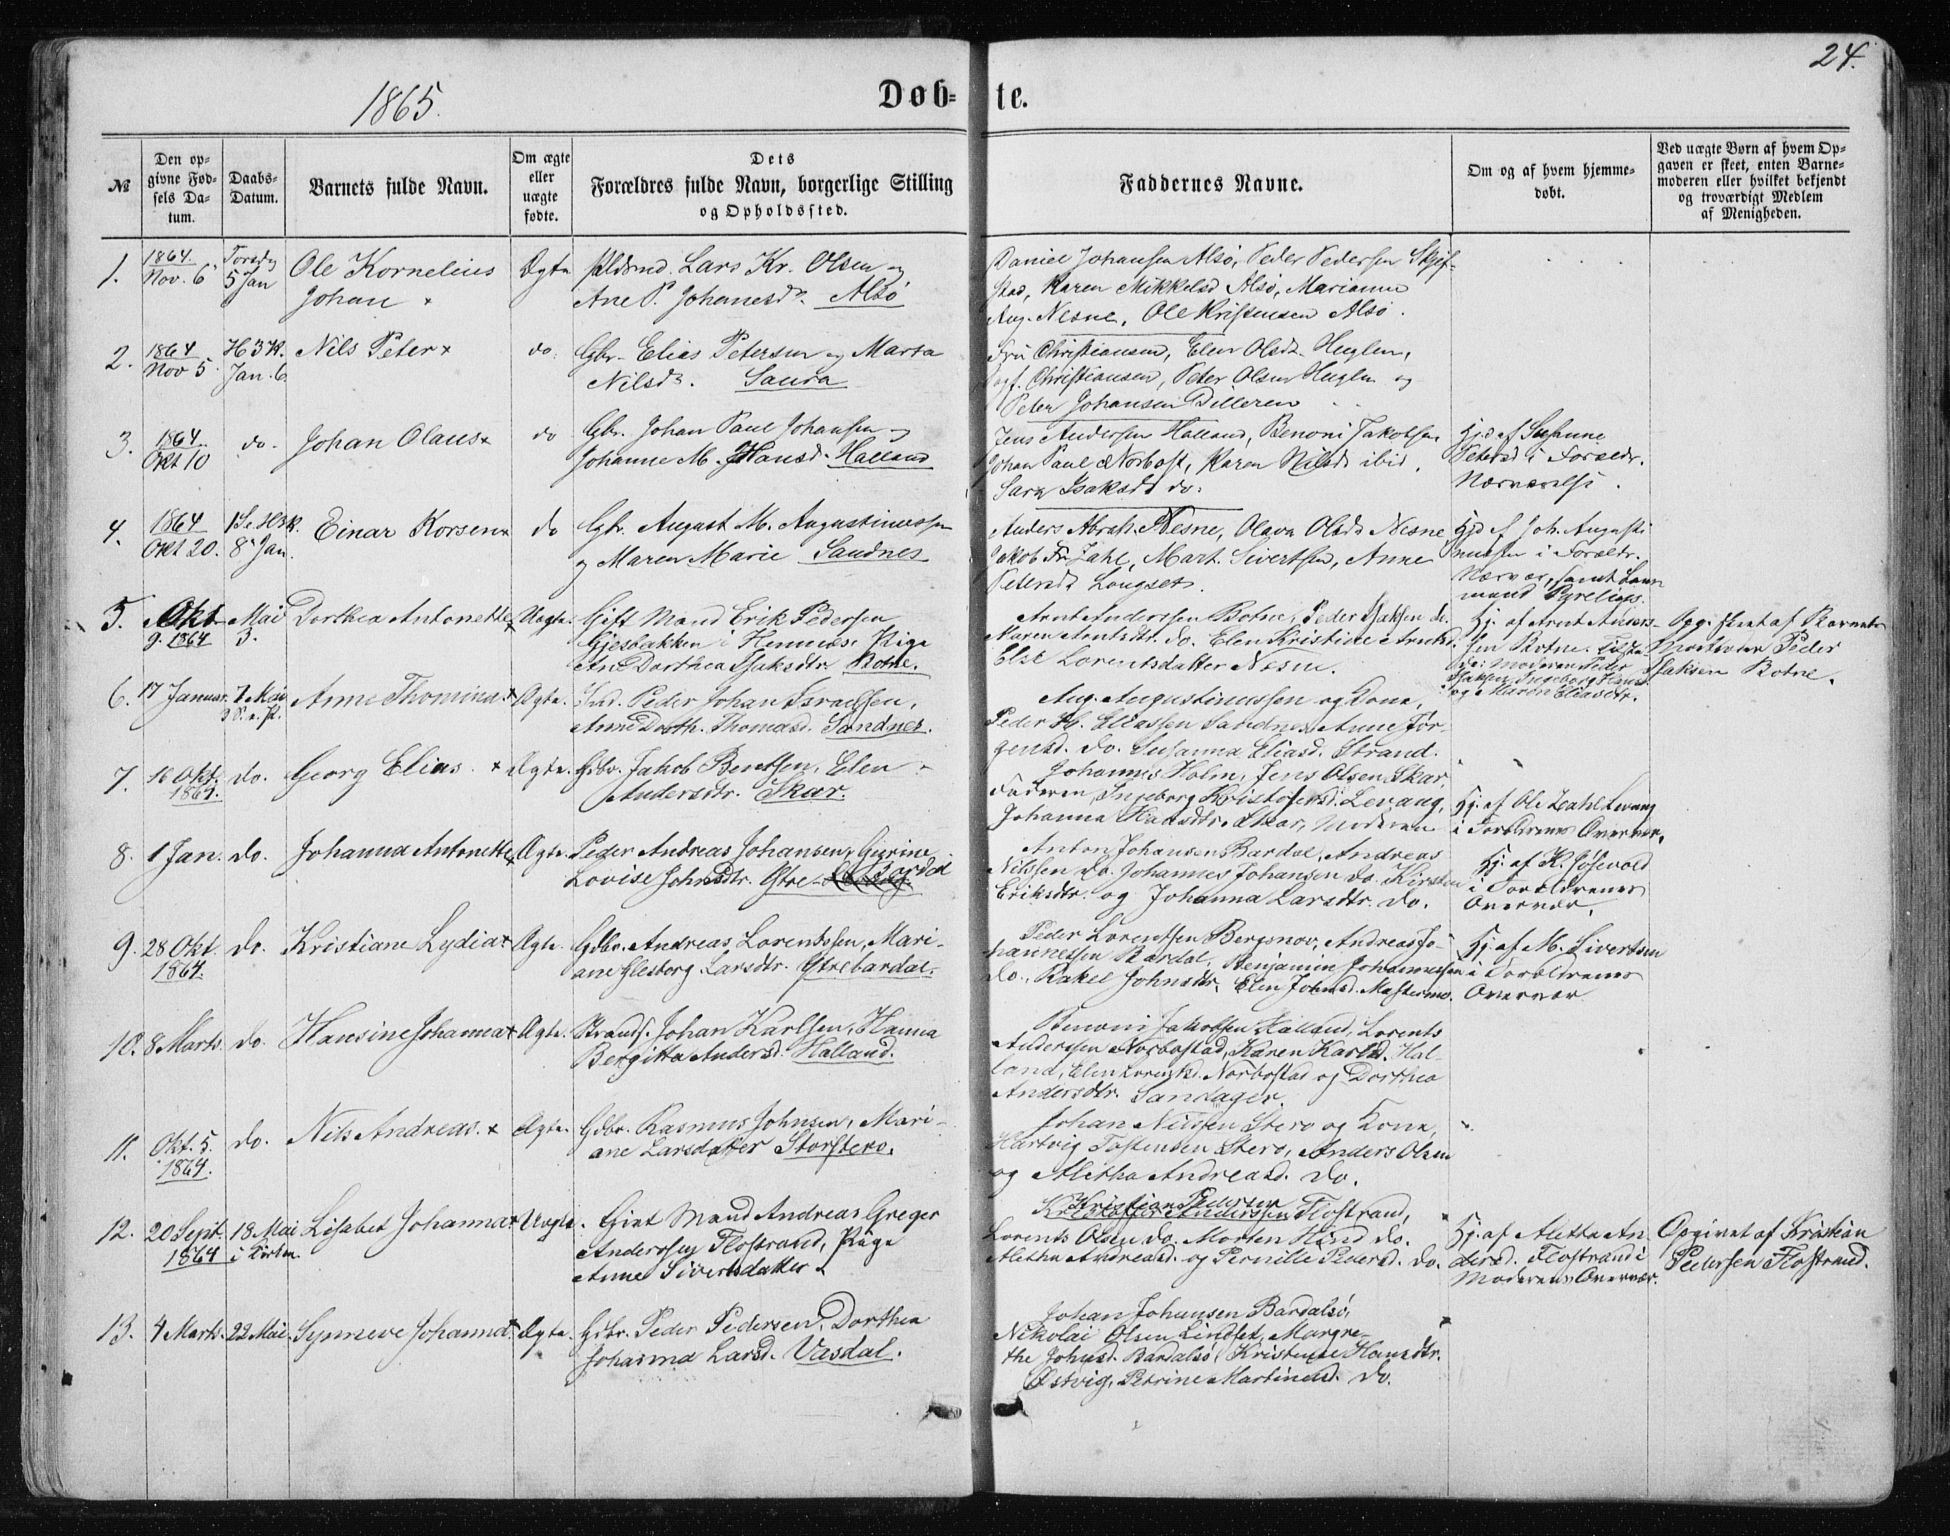 24.
1865.
Døb=
te.
№
Den op=
givne Fød=
sels Da=
tum.
Daabs=
Datum.
Barnets fulde Navn.
Om ægte
eller
uægte
fødte.
Dets
Forældres fulde Navn, borgerlige Stilling
og Opholdssted.
Faddernes Navne.
Om og af hvem hjemme=
døbt.
Ved uægte Børn af hvem Op=
gaven er skeet, enten Barne=
moderen eller hvilket bekjendt
og troværdigt Medlem
af Menigheden.
1.
1864
Nov. 6
5 Jan
Ole Kornelius
Johan ×
Ægte
Lars Kr. Olsen og
Ane P. Johanesdr. Alsø
Daniel Johansen Alsø, Peder Pedersen Skjef-
stad, Karen Mikkelsd Alsø, Marianne
Aug. Nesne, Ole Kristensen Alsø.
2.
1864
Nov 5
H 3 K.
Jan. 6
Nils Peter ×
do
Gbr. Elias Petersen og Marta
Nilsdr. Saura
Fru Christiansen, Elen Olsdr Huglen,
Christiansen, Peter Olsen Huglen og
Peter Johansen Dilleren
3.
1864
Okt 10
do
Johan Olaus ×
do
Gbr. Johan Paul Johansen og
Johanne M. Hansd. Halland
Jens Andersen Halland, Benoni Jakobsen
Johan Paul Norbost, Karen Nilsd ibid.
Sara Isaksd do.
Hjd af Susanne
Petersd i Forældr.
Nærværelse.
4.
1864
Okt 20.
8 Jan.
Einar Korsen ×
do
Gbr. August M. Augustinussen
og Maren Marie Sandnes
Anders Abrah. Nesne, Olava Olsd Nesne
Jakob Fr Zahl, Mart. Sivertsen, Anne
Petersdr Longset.
Hjd af Joh. Augusti
nussen i Forældr.
Nærvær, samt
5.
Okt
9. 1864
Mai
3.
Dorthea Antonette ×
Uægte.
Gift Mand Erik Pedersen
Gjesbakken i Hemnæs. Pige
Ane Dorthea Isaksdtr Botne.
Arnt Anderssen Botne, Peder Isaksen do.
Maren Arntsdtr. do. Elen Kristine Arntsd.
Else Lorentsdatter Nesne.
Hj. af Arent Anders-
sen Botne. Tilstede:
Moderen Peder
Isaksen, Ingeborg Hansd.
og Maren Eliasdr.
Opg. skeet af Barnets
Morbroder Peder
Isaksen Botne.
6.
17 Januar.
7 Mai
3 S. e. P.
Anne Thomina ×
Ægte.
Peder Johan Israelsen,
Anne Doroth. Thomasd. Sandnes.
Aug. Augustinussen og Kone,
Peder H. Eliassen Sandnes, Anne Jør-
gensd. do. Susanna Eliasd. Strand.
7.
16 Okt.
1864.
do.
Georg Elias. ×
Ægte.
Gdbr. Jakob Bentsen, Elen
Andersdtr. Skar.
Johannes Holm, Jens Olsen Skar,
Faderen, Ingeborg Kristofersd. Levang,
Johanna Hansdtr. Skar, Moderen
Hj. af Ole Zahl Levang
i Forældrenes Overvær.
8.
1 Jan.
do.
Johanna Antonette ×
Ægte.
Peder Andreas Johansen, Gurine
Lovise Johnsdtr. Ytre Bardal
Anton Johansen Bardal, Andreas
Nilssen do. Johannes Johansen do. Kirsten
Eriksdtr. og Johanna Larsdtr. do.
Hj. af K. Jøsevold
i Forældrenes
Overvær.
9.
28 Okt.
1864.
do.
Kristiane Lydia ×
Ægte.
Gdbr. Andreas Lorentssen, Mari-
ane Elesborg Larsdtr. Ytrebardal.
Peder Lorentsen Bergsnov, Andreas Jo-
hannessen Bardal, Benjamin Johannessen
do., Rakel Johnsdtr, Elen Johnsd. Mastermo.
Hj. af M. Sivertsen
i Forældrenes
Overvær.
10.
8 Marts.
do.
Hansine Johanna ×
Ægte.
Strands. Johan Karlsen, Hanna
Bergitta Andersd. Halland.
Benoni Jakobsen Halland, Lorents
Anderssen Norbostad, Karen Karlsd. Hal-
land, Elen Lorentsd. Norbostad og Dorthea
Andersdtr. Sandager.
11.
Okt. 5.
1864.
do.
Nils Andreas. ×
Ægte.
Gdbr. Rasmus Johnsen, Mari-
ane Larsdatter Storstero.
Johan Nilssen Stero og Kone,
Hartvig Tostensen Stero, Anders Olsen
og Alitha Andreasd. do.
12.
20 Sept.
1864
18 Mai
i Kirken
Lisabet Johanna ×
Uægte.
Gift Mand Andreas Greger
Anderssen Flostrand, Pige
Anne Sivertsdatter
Kristian Pedersen
Kristoffer Anderssen Flostrand,
Lorents Olsen do. Morten Hind do.
Aletha Andreasd. og Pernille Pedersd. do.
Hj. af Aletta An
dersd. Flostrand i
Moderens Overvær.
Opgivet af Kristian
Pedersen Flostrand.
13.
4 Marts.
22 Mai.
Synneve Johanna ×
Ægte.
Gdbr. Peder Pedersen, Dorthea
Johanna Larsd. Vasdal.
Johan Johansen Bardalsø,
Nikolai Olsen Lindset, Margre-
the Johnsd. Bardalsø, Kristense Hansdtr.
Østvig, Petrine Martinusd. do.